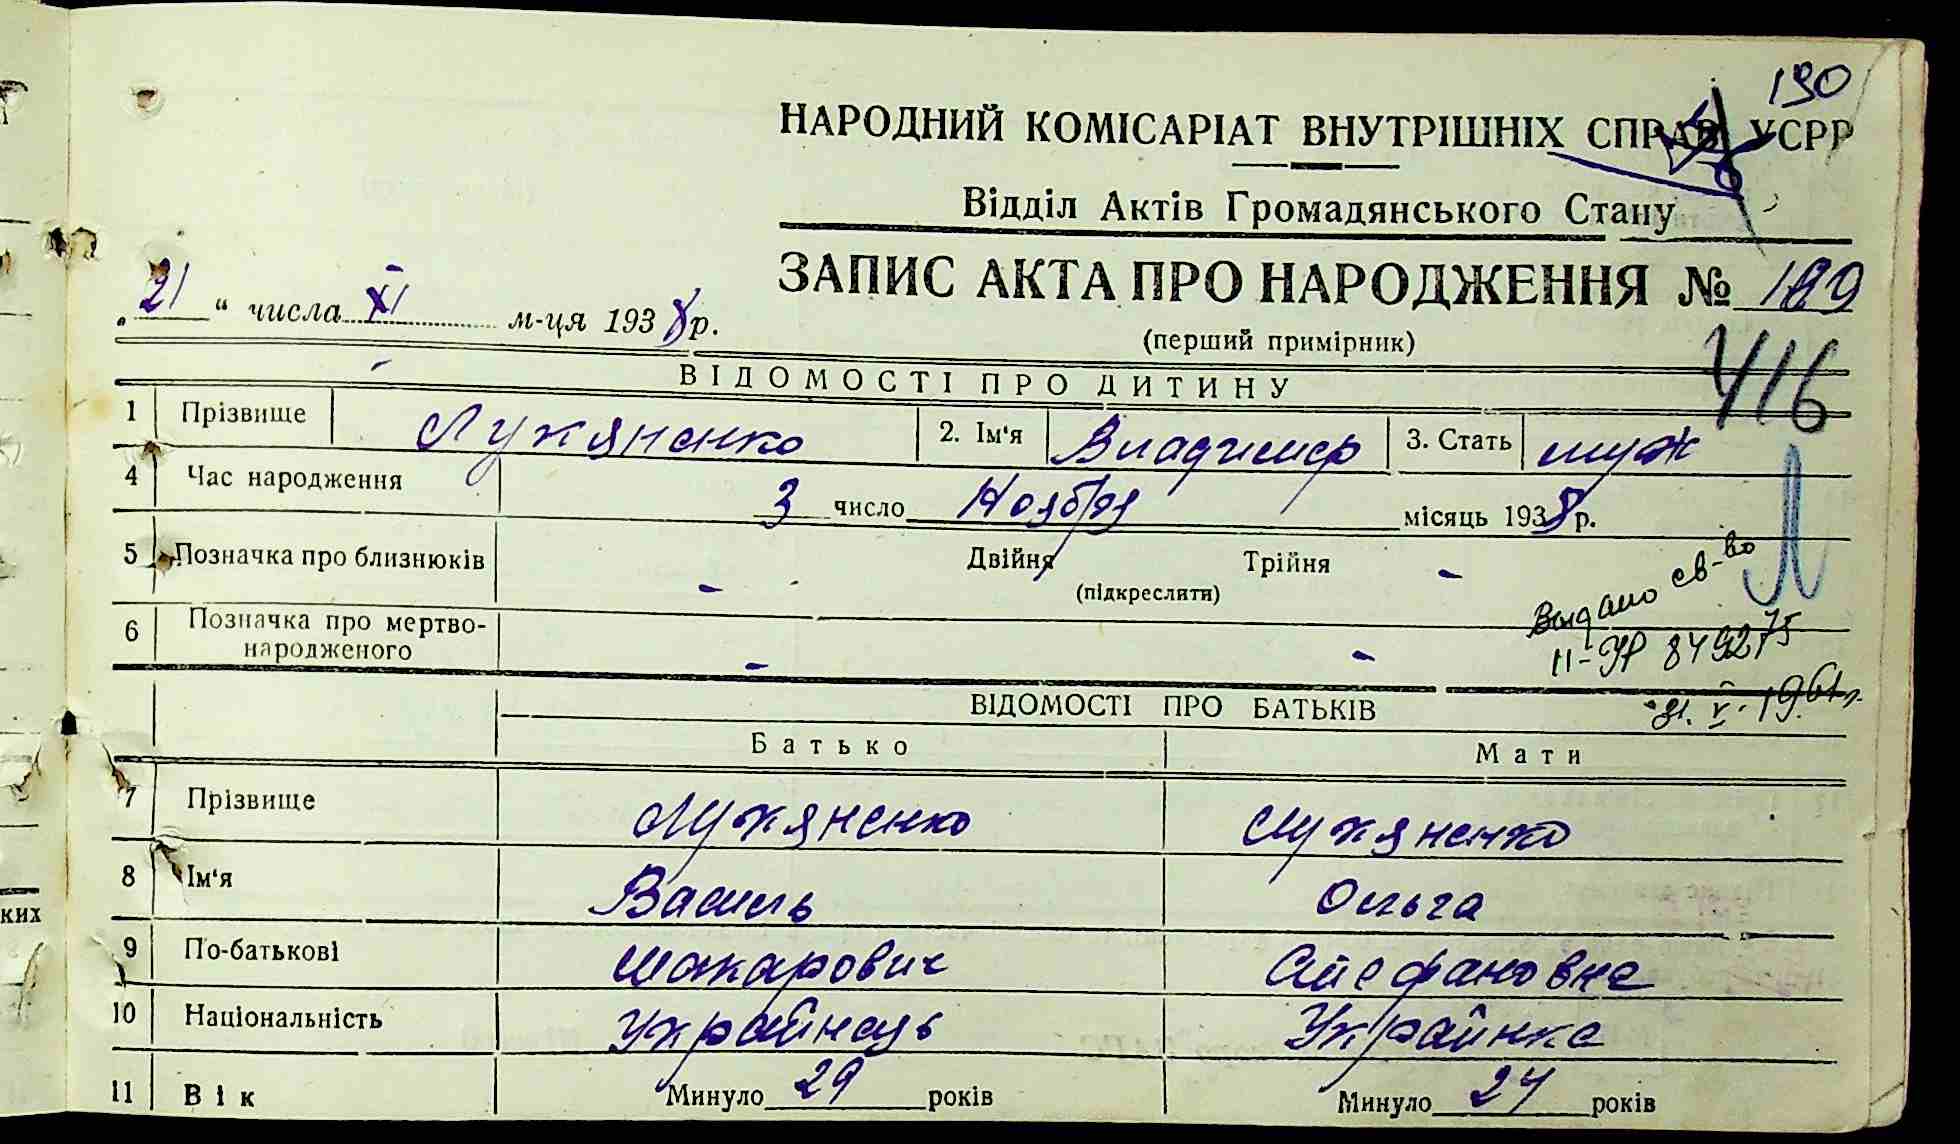 190
НАРОДНИЙ КОМІСАРІАТ ВНУТРІШНІХ СПРАВ УСРР
Відділ Актів Громадянського Стану
ЗАПИС АКТА ПРО НАРОДЖЕННЯ № 189
„21“ числа XI м-ця 1938 р.
(перший примірник)
416
ВІДОМОСТІ ПРО ДИТИНУ
1 Прізвище Лукяненко 2. Ім‘я Владимир 3. Стать муж
4 Час народження 3 число Ноября місяць 1938 р.
5 Позначка про близнюків - Двійня Трійня -
(підкреслити)
Выдано св-во
6 Позначка про мертво-
народженого - -
II-УР 849275
31.V.1961г.
ВІДОМОСТІ ПРО БАТЬКІВ
Батько Мати
7 Прізвище Лукяненко Лукяненко
8 Ім‘я Василь Ольга
9 По-батькові Макарович
10 Національність Украйнець Украйнка
11 Вік Минуло 29 років Минуло 24 років
ких